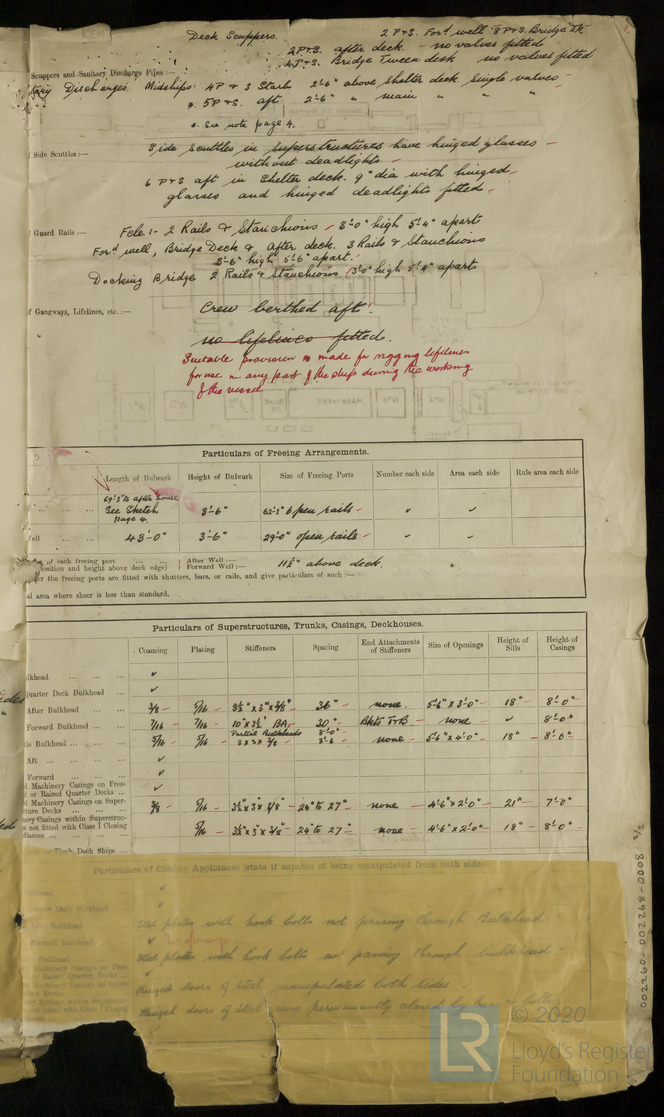 Deck Scuppers. 2 P&S. Ford well 8 P&S. Bridge Dk
2 P&S. after deck - no valves fitted
4 P&S. Bridge Tween deck no valves fitted
Scuppers and Sanitary Discharge Pipes :—
Discharges. Midships. 4P & 3 Starb 2'-6" above shelter deck single valves -
5P & S. aft 2'-6" " main " " "
See note page 4.
Side Scuttles :—
Side scuttles in superstructures have hinged glasses -
without deadlights -
6 P&S aft in Shelter deck. 9" dia with hinged
glasses and hinged deadlights fitted.
Guard Rails :—
2 Rails & Stanchions 3'-0" high 5'-4" apart
Ford well, Bridge Deck & after deck. 3 Rails & Stanchions
3'-6" high 5'-6" apart.
Docking Bridge 2 Rails & Stanchions 3'-0" high 5'-4" apart
f Gangways, Lifelines, etc. :—
Crew berthed aft.
no lifelines fitted.
Suitable provision is made for rigging lifelines
for use in any part of the ship during the working
of the vessel
Particulars of Freeing Arrangements.
Length of Bulwark Height of Bulwark Size of Freeing Ports Number each side Area each side Rule area each side
after house
See Sketch page 4 3'-6" open rails
ell 43'-0" 3'-6" 29'-0" open rails
of each freeing port
position and height above deck edge) After Well :—
Forward Well :— 11½" above deck.
er the freeing ports are fitted with shutters, bars, or rails, and give particulars of such :—
al area where sheer is less than standard.
Particulars of Superstructures, Trunks, Casings, Deckhouses.
Coaming Plating Stiffeners Spacing End Attachments of Stiffeners Size of Openings Height of Sills Height of Casings
ulkhead
Quarter Deck Bulkhead
After Bulkhead 5/16 36" none. 5'-6" x 3'-0" 18" 8'-0"
Forward Bulkhead 7/16 7/16 10" x 3½" BA 30" Bkts T&B none 8'-0"
le Bulkhead 5/16 5/16 Partial Bulkheads 3 x 3 x 3/8 none 5'-6" x 4'-0" 18" 8'-0"
Aft
Forward
d Machinery Casings on Free-
or Raised Quarter Decks
d Machinery Casings on Super-
ture Decks 3/8 5/16 24" to 27" none 4'-6" x 2'-0" 21" 7'-0"
nery Casings within Superstruc-
s not fitted with Class I Closing
pliances 5/16 3½" x 3" x 3/8" 24" to 27" none 4'-6" x 2'-0" 18" 8'-0"
Flush Deck Ships
Particulars of Closing Appliances (state if capable of being manipulated from both sides
Quarter Deck Bulkhead
After Bulkhead Steel plates with hook bolts not passing through Bulkhead
Forward Bulkhead no openings
Bulkhead Steel plates with hook bolts not passing through bulkhead -
Machinery Casings on Free-
Raised Quarter Decks
Machinery Casings on Super-
Decks Hinged doors of Steel manipulated both sides.
Casings within Superstruc-
fitted with Class I Closing Hinged doors of Steel permanently closed by bars & bolts
002260-002268-0008 2/2
LR
© 2020
Lloyd's Register
Foundation